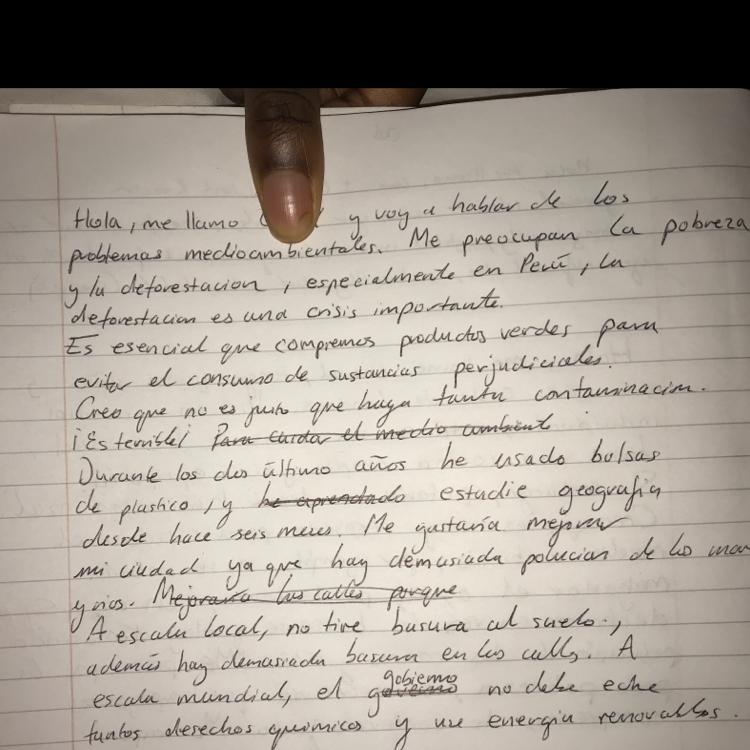 Hola, me llamo y voy a hablar de los
problemas mediocambientales. Me preocupan la pobreza
y la deforestacion, especialmente en Perú, la
deforestacion es una crisis importante.
Es esencial que compremos productos verdes para
evitar el consumo de sustancias perjudiciales.
Creo que no es justo que haya tanta contaminacion.
¡Es terrible! Para cuidar el medio ambient
Durante los dos último años he usado bolsas
de plastico, y he aprendado estudie geografia
desde hace seis meses. Me gustaría mejorar
mi ciudad ya que hay demasiada polucian de lo mar
y rios. Mejoraria las calles porque
A escala local, no tire basura al suelo.,
además hay demasiada basura en las calls. A
escala mundial, el gobierno no debe eche
tantos desechos quimicos y use energia renovables.